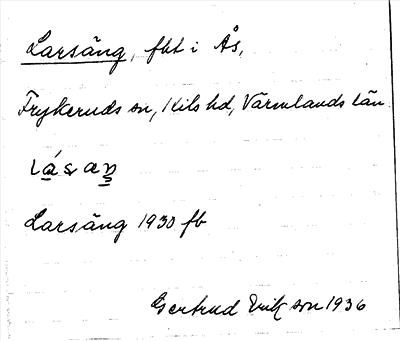 Larsäng, fbt i Ås,
Frykeruds sn, Kils hd, Värmlands län.
Larsäng 1930 fb
Gertrud Eriksson 1936